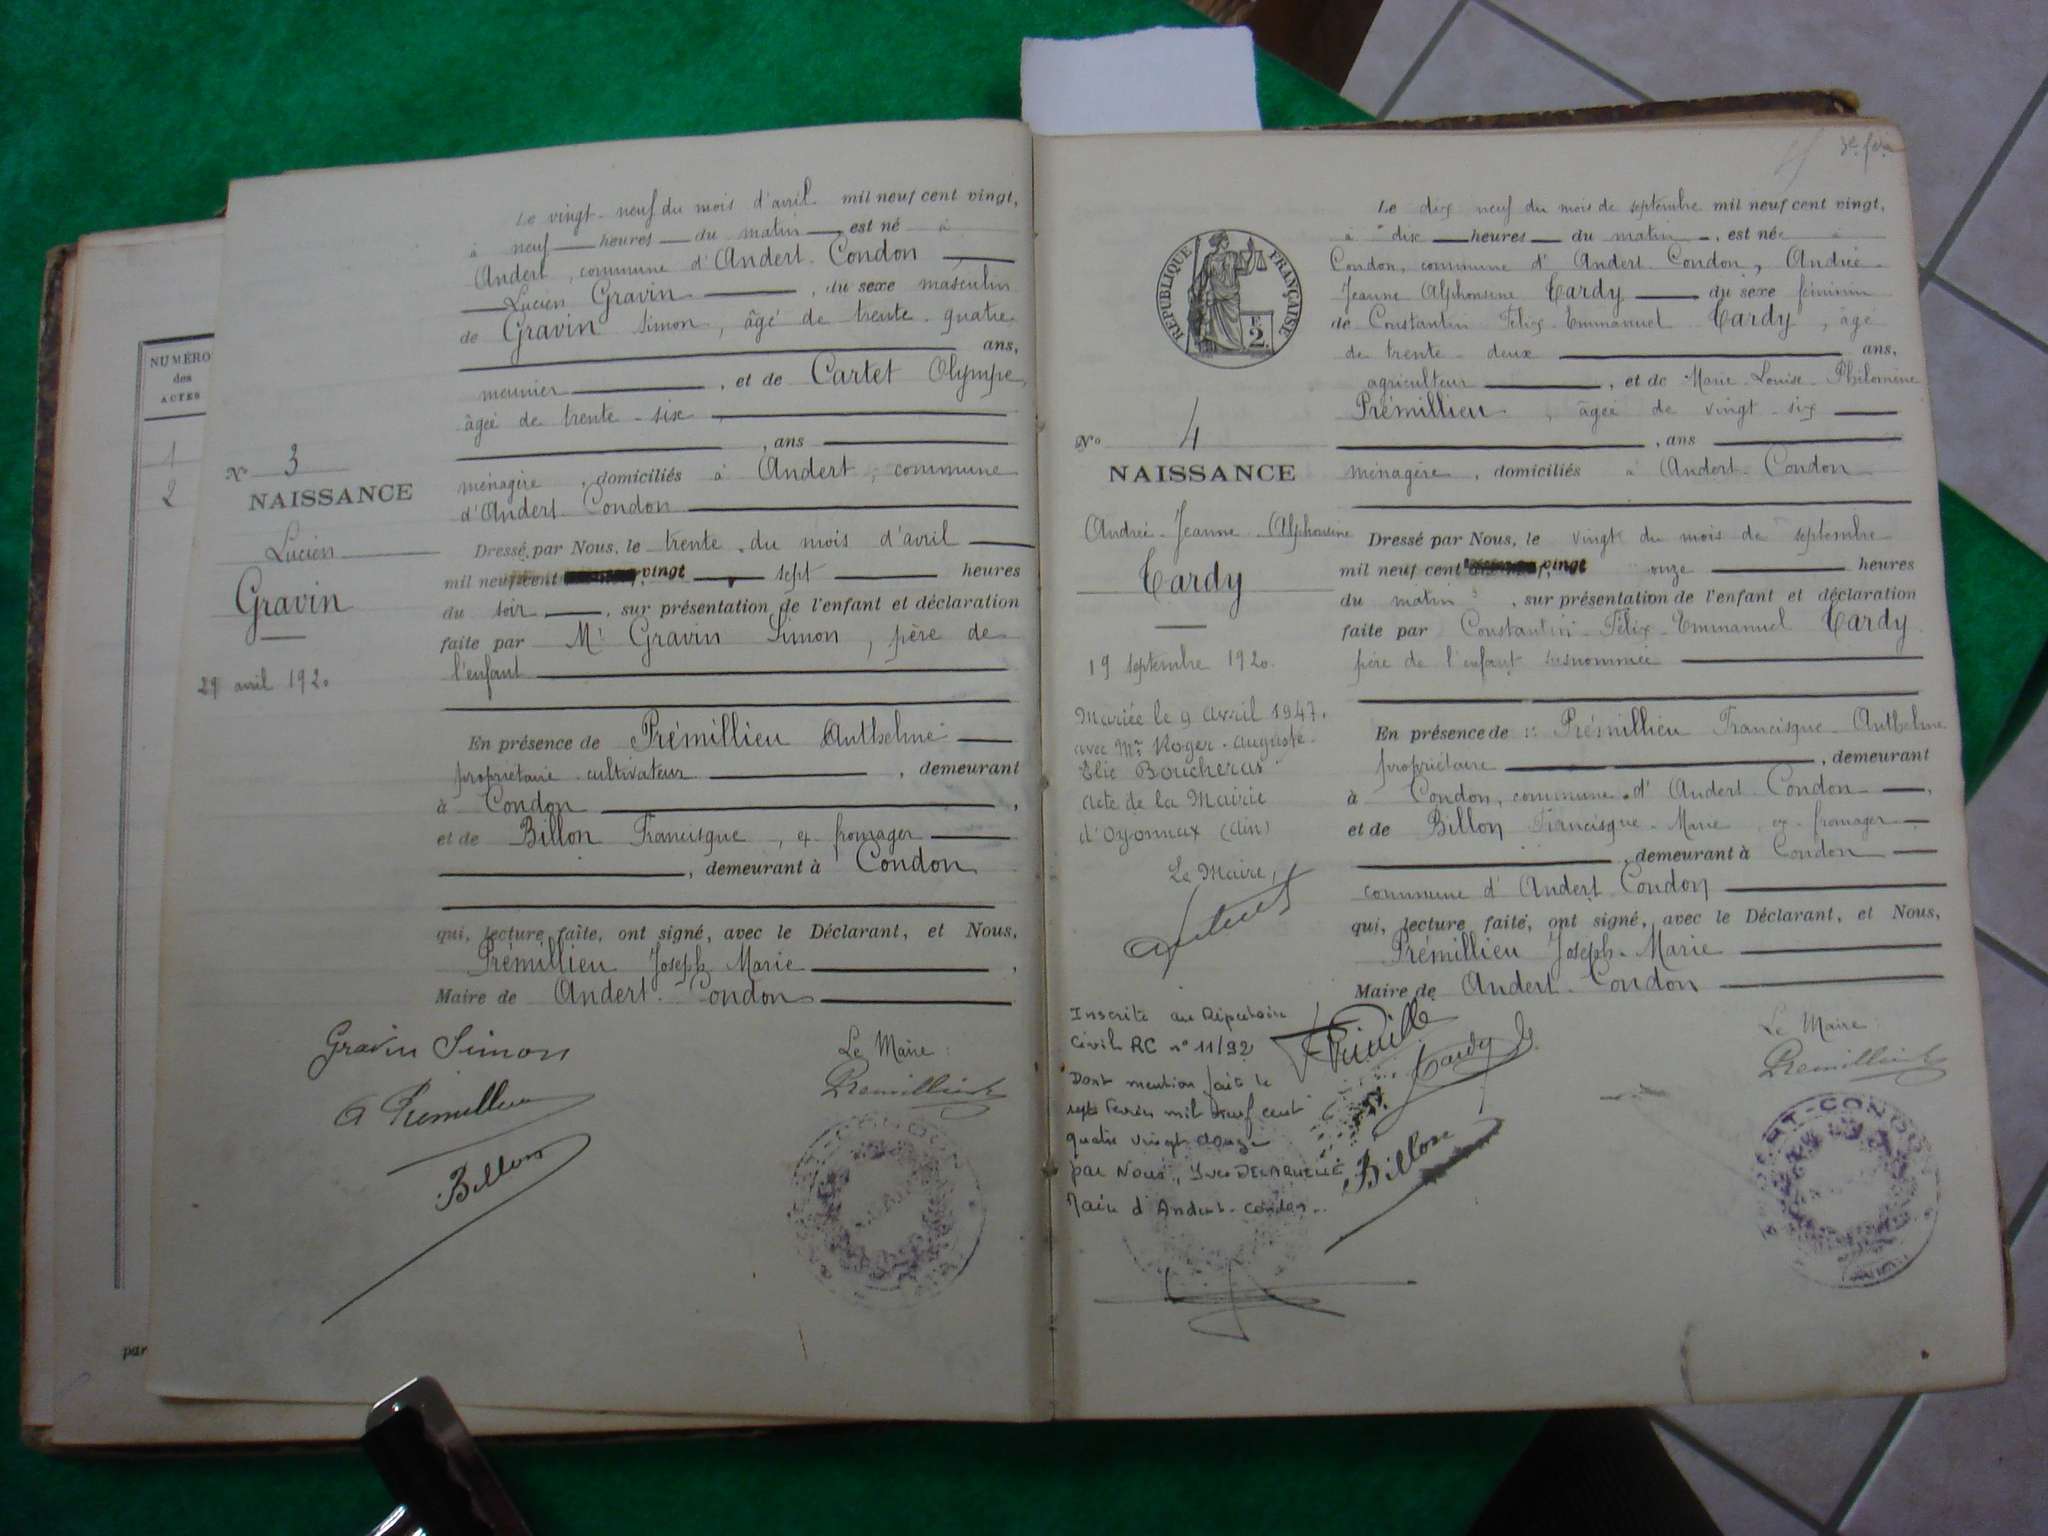 NUMÉRO
des
ACTES
1
2
par
Le vingt-neuf du mois d'avril mil neuf cent vingt,
à neuf heures du matin, est né à
Andert, commune d'Andert-Condon,
Lucien Gravin, du sexe masculin
de Gravin Simon, âgé de trente-quatre
ans,
meunier, et de Cartet Olympe,
âgée de trente-six
, ans
ménagère, domiciliés à Andert, commune
d'Andert-Condon
Dressé par Nous, le trente du mois d'avril
mil neuf cent vingt, sept heures
du soir, sur présentation de l'enfant et déclaration
faite par Mr Gravin Simon, père de
l'enfant
En présence de Prémillieu Anthelme
propriétaire-cultivateur, demeurant
à Condon,
et de Billon Francisque, ex-fromager
, demeurant à Condon
qui, lecture faite, ont signé, avec le Déclarant, et Nous,
Prémillieu Joseph Marie,
Maire de Andert-Condon
No 3
NAISSANCE
Lucien
Gravin
29 avril 1920
Gravin Simon
Le Maire:
A Prémillieu
Premillieu
Billon
RÉPUBLIQUE FRANÇAISE
2
Le dix neuf du mois de septembre mil neuf cent vingt,
à dix heures du matin, est née à
Condon, commune d'Andert-Condon, Andrée
Jeanne Alphonsine Tardy du sexe féminin
de Constantin Félix-Emmanuel Tardy, âgé
de trente-deux ans,
agriculteur, et de Marie-Louise-Philomène
Prémillieu, âgée de vingt-six
, ans
ménagère, domiciliés à Andert-Condon
Dressé par Nous, le vingt du mois de septembre
mil neuf cent vingt onze heures
du matin, sur présentation de l'enfant et déclaration
faite par Constantin-Félix-Emmanuel Tardy
père de l'enfant susnommée
En présence de: Prémillieu Francisque-Anthelme
propriétaire, demeurant
à Condon, commune d'Andert-Condon,
et de Billon Francisque-Marie ex-fromager
, demeurant à Condon
commune d'Andert-Condon
qui, lecture faite, ont signé, avec le Déclarant, et Nous,
Prémillieu Joseph-Marie
Maire de Andert-Condon
No 4
NAISSANCE
Andrée-Jeanne-Alphonsine
Tardy
19 septembre 1920.
Mariée le 9 Avril 1947.
avec Mr Roger-Auguste-
Elie Boucheras
Acte de la Mairie
d'Oyonnax (Ain)
Le Maire,
Inscrite au Répertoire
Civil RC n° 11/92
Dont mention fait le
mil neuf cent
quatre vingt douze
par Nous, Yves DELARUELLE
Maire d'Andert-Condon.
Tardy
Billon
Le Maire:
Premillieu